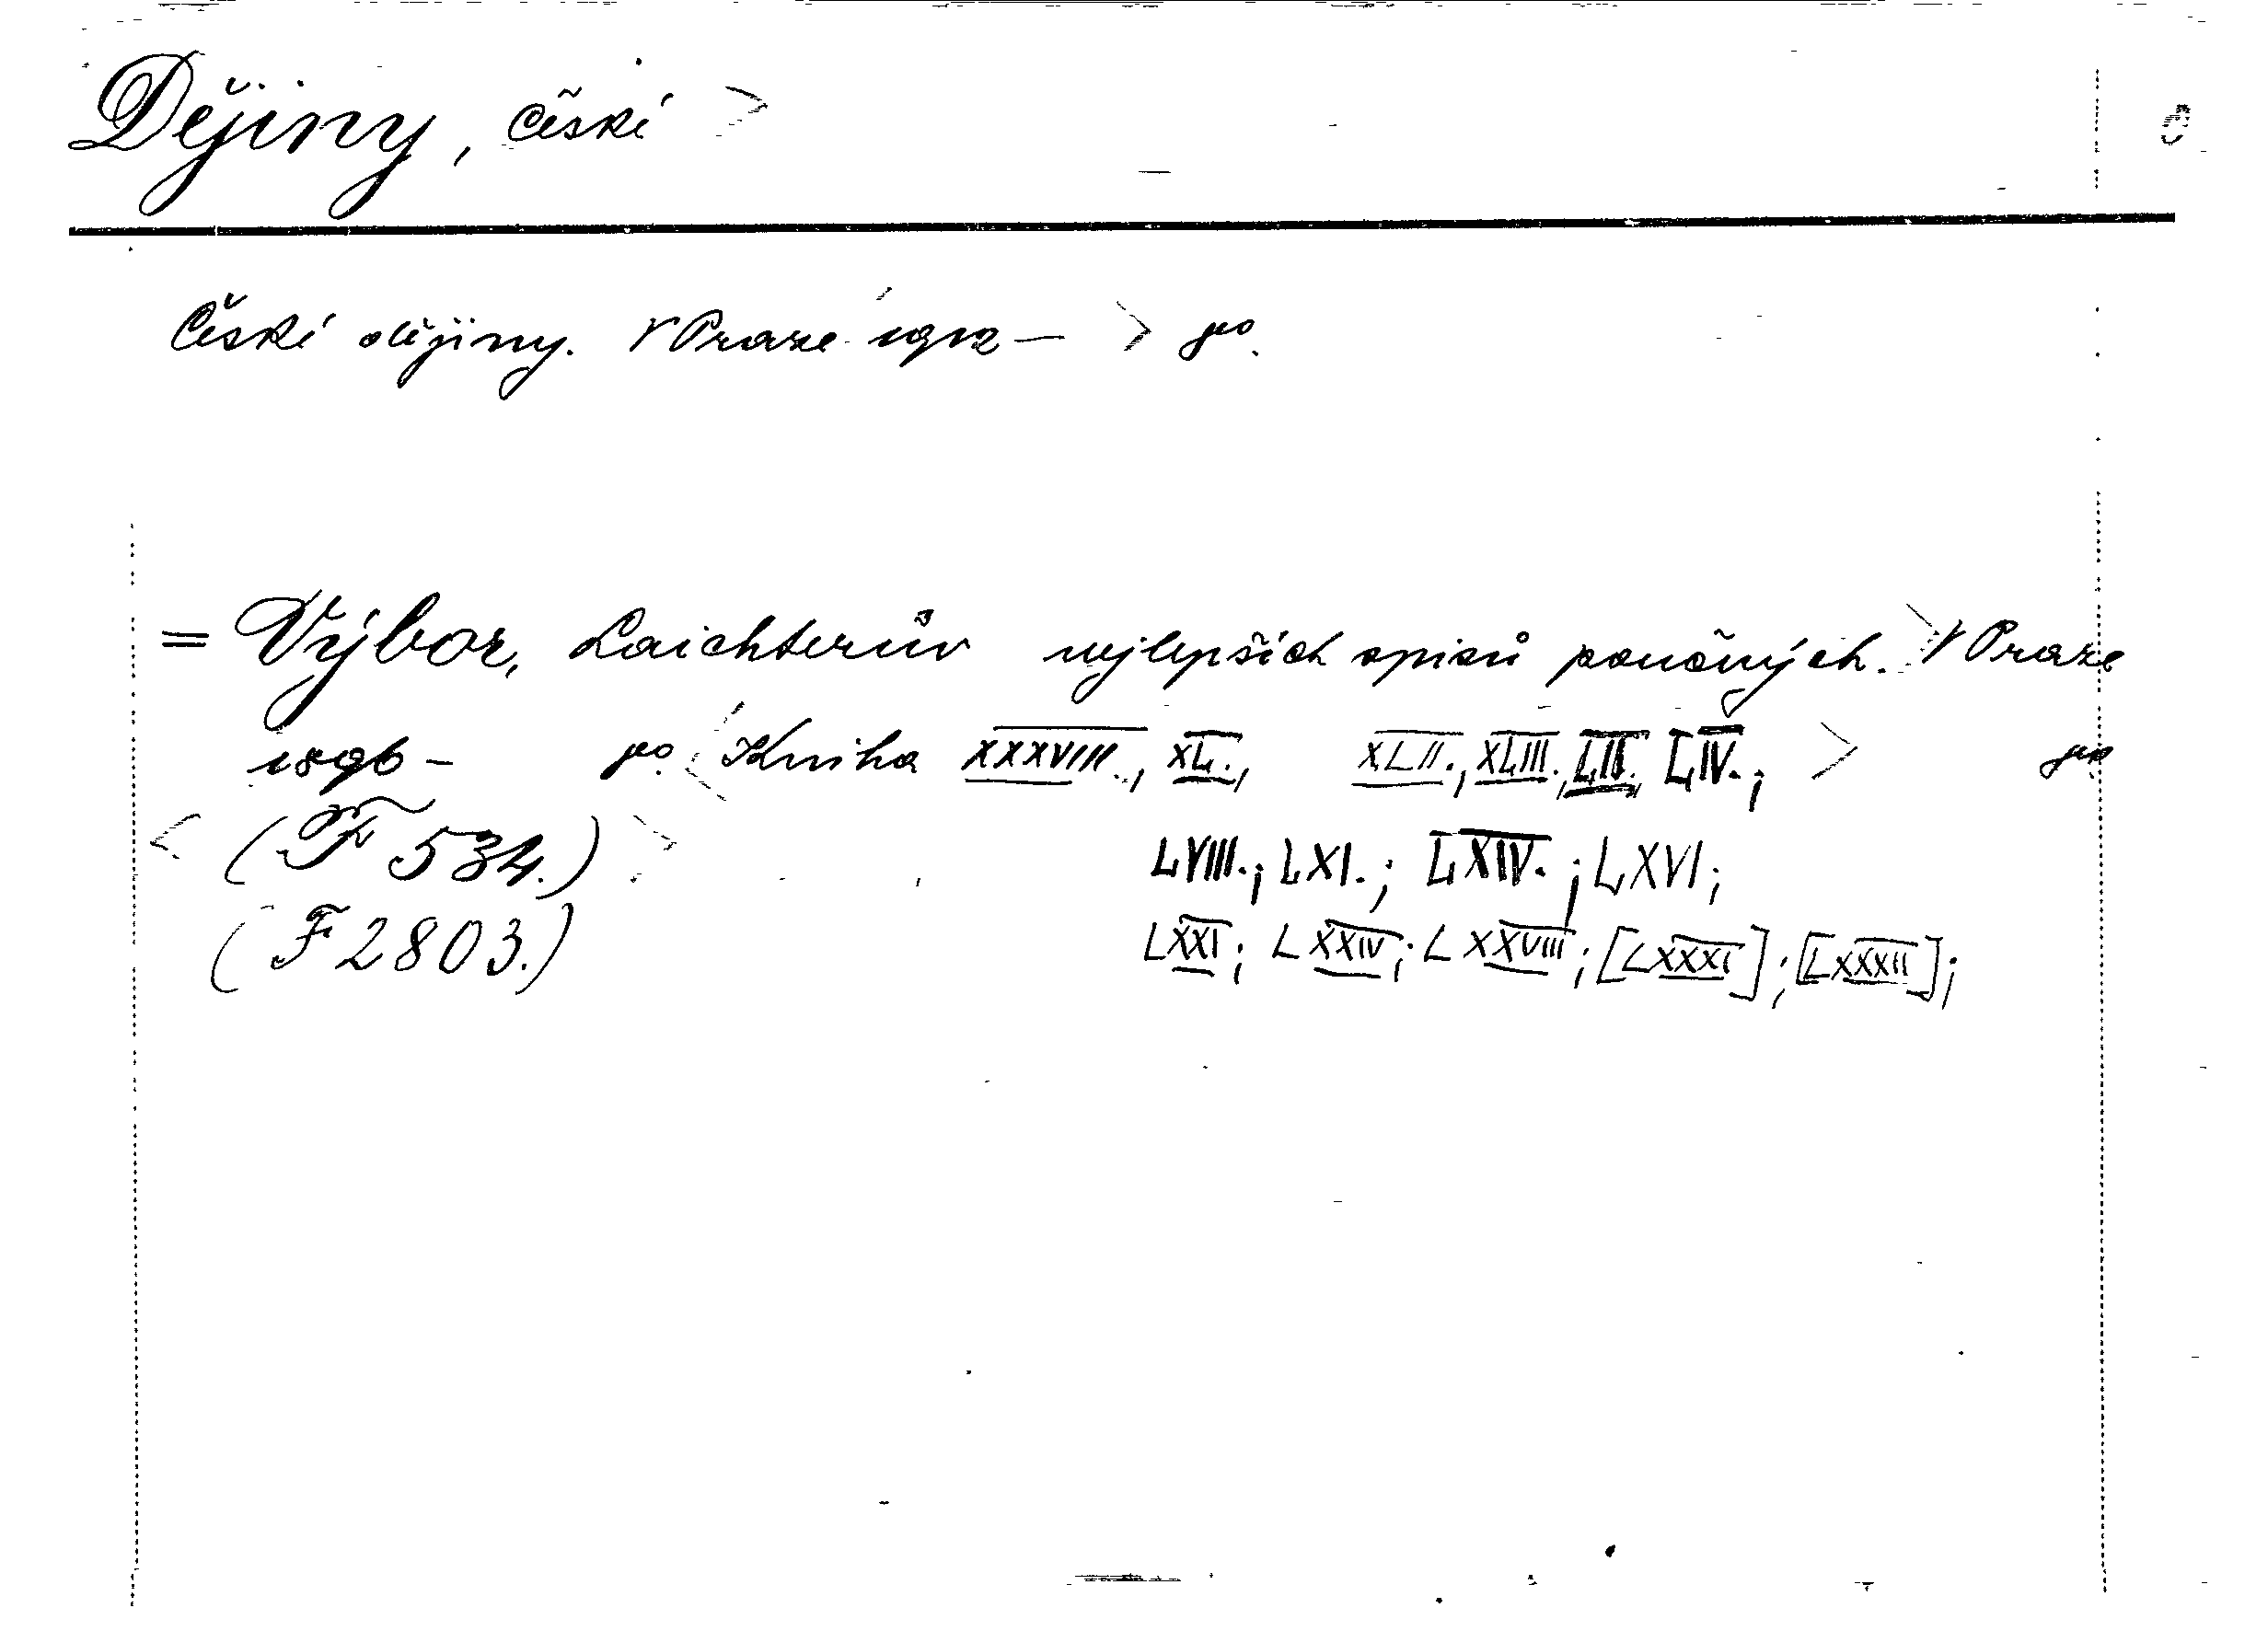 Dějiny, české >
České dějiny. V Praze 1912 — > 8º.
= Výbor, Laichterův nejlepších spisů poučných. > V Praze
1896 — 8º. < Kniha XXXVIII., XL., XLII., XLIII., LII., LIV.; > 8º
< (F 534.) > LVIII.; LXI.; LXIV.; LXVI;
(F 2803.) LXXI; LXXIV; LXXVIII; [LXXXI]; [LXXXII];